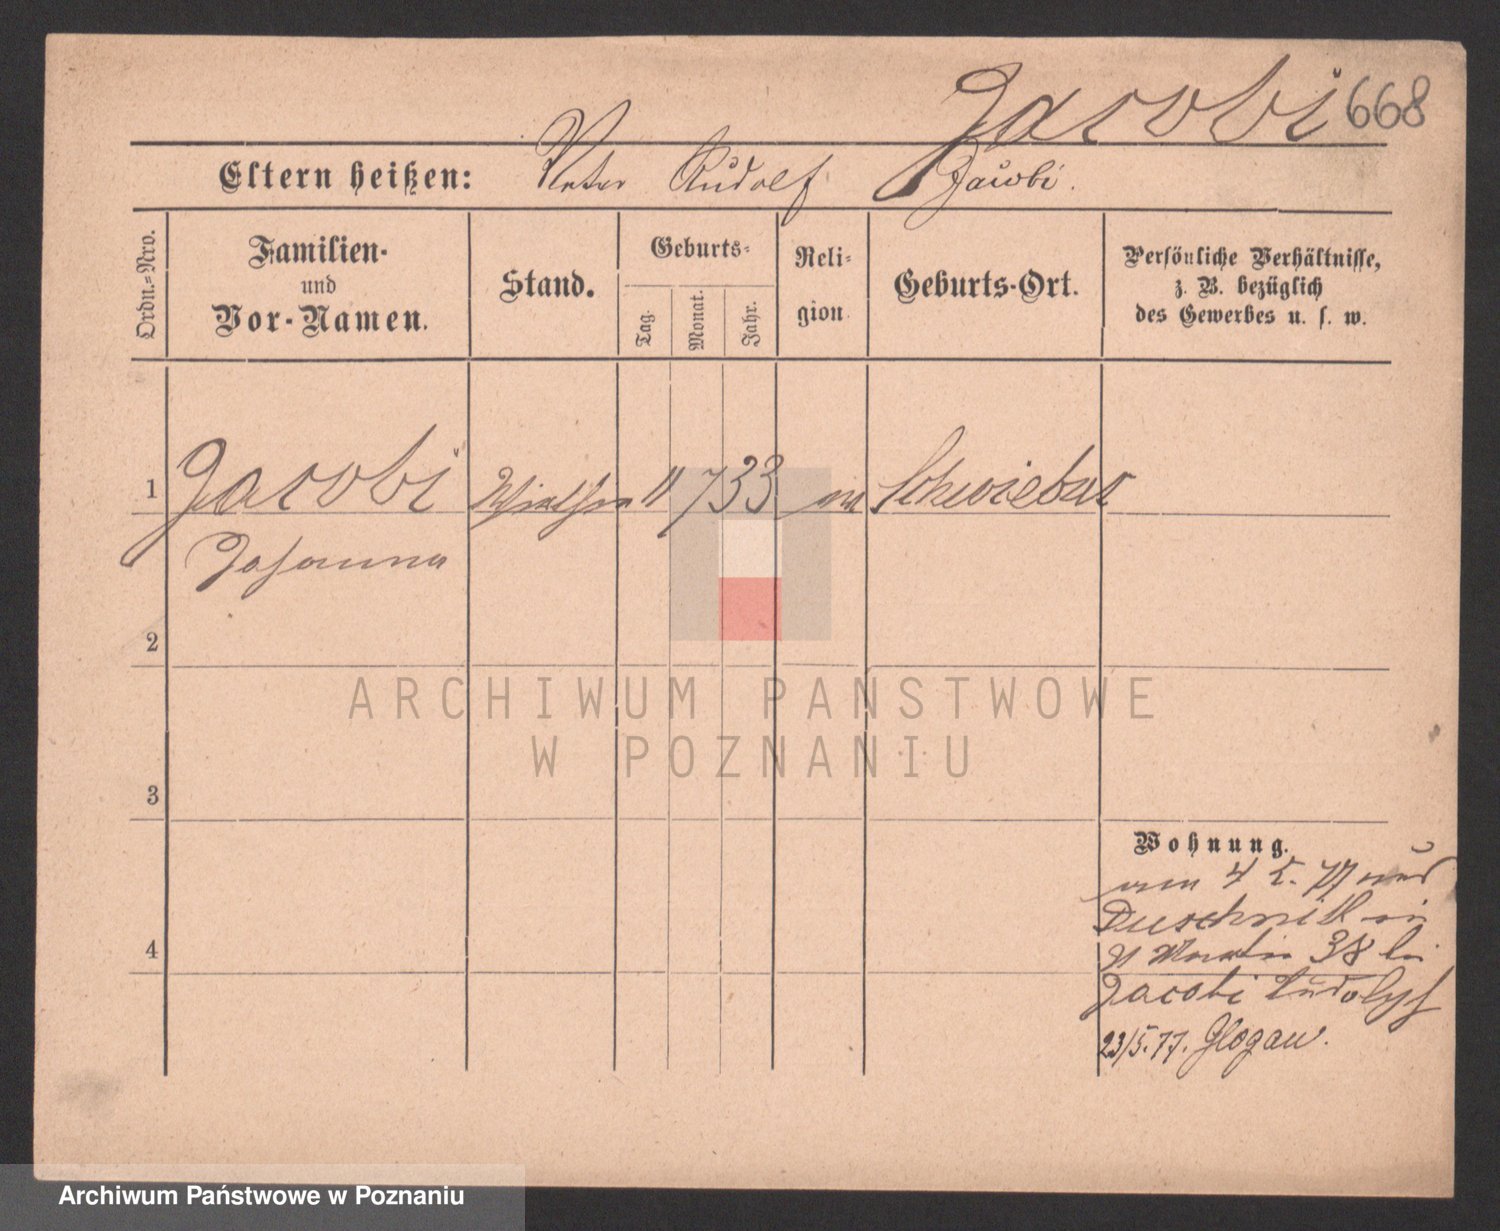 Jacobi 668
Eltern heißen: Vater Rudolf Jacobi.
Ordn.=Nro.
Familien-
und
Vor-Namen.
Stand.
Geburts-
Tag.
Monat.
Jahr.
Reli-
gion
Geburts-Ort.
Persönliche Verhältnisse,
z. B. bezüglich
des Gewerbes u. s. w.
1 Jacobi 11 7 33 Schwiebus
Johanna
2
ARCHIWUM PANSTWOWE
W POZNANIU
3
Wohnung.
4 5. 77
Duschnik in
St Martin 38 bei
4
Jacobi Rudolph
23/5. 77. Glogau.
Archiwum Państwowe w Poznaniu